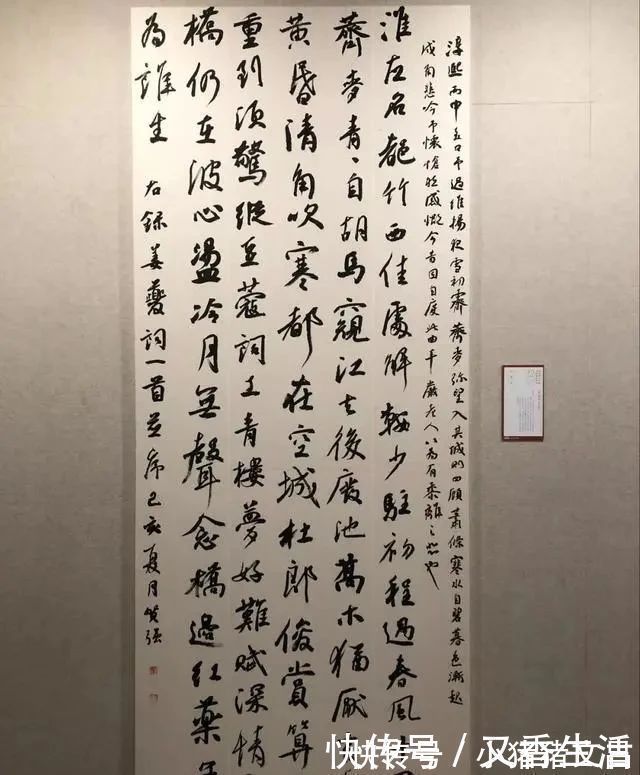 淳熙丙申至日予過維揚夜雪初霽薺麥彌望入其城則四顧蕭條寒水自碧暮色漸起
戍角悲吟予懷愴然感慨今昔因自度此曲千巖老人以為有黍離之悲也
淮左名都竹西佳處解鞍少駐初程過春風
薺麥青々自胡馬窺江去後廢池喬木猶厭
黃昏清角吹寒都在空城杜郎俊賞算
重到須驚縱豆蔻詞工青樓夢好難賦深情
橋仍在波心盪冷月無聲念橋邊紅藥年
為誰生 右錄姜夔詞一首並序己亥夏月
快传号 / 又香生活